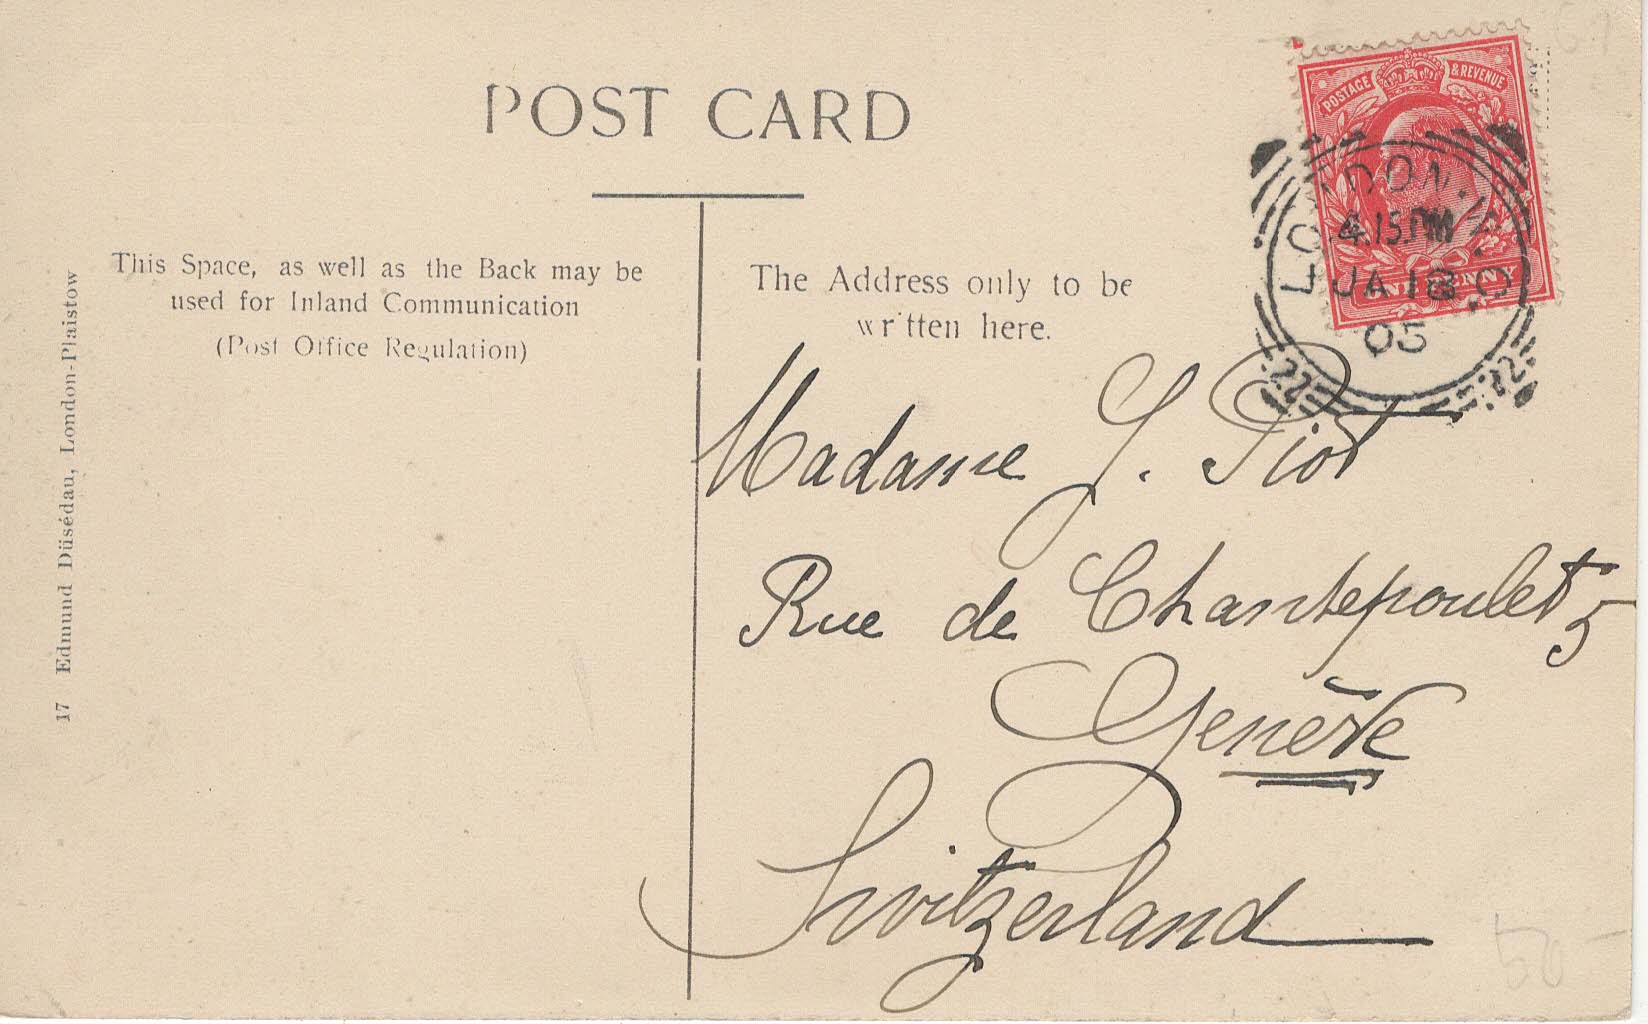 POST CARD
This Space, as well as the Back may be
used for Inland Communication
(Post Office Regulation)
The Address only to be
written here.
17 Edmund Düsédau, London-Plaistow
POSTAGE & REVENUE
ONE PENNY
LONDON. W.C
4.15.PM
JA 18
05
22 22
Madame J. Piot
Rue de Chantepoulet 5
Genève
Switzerland
50-